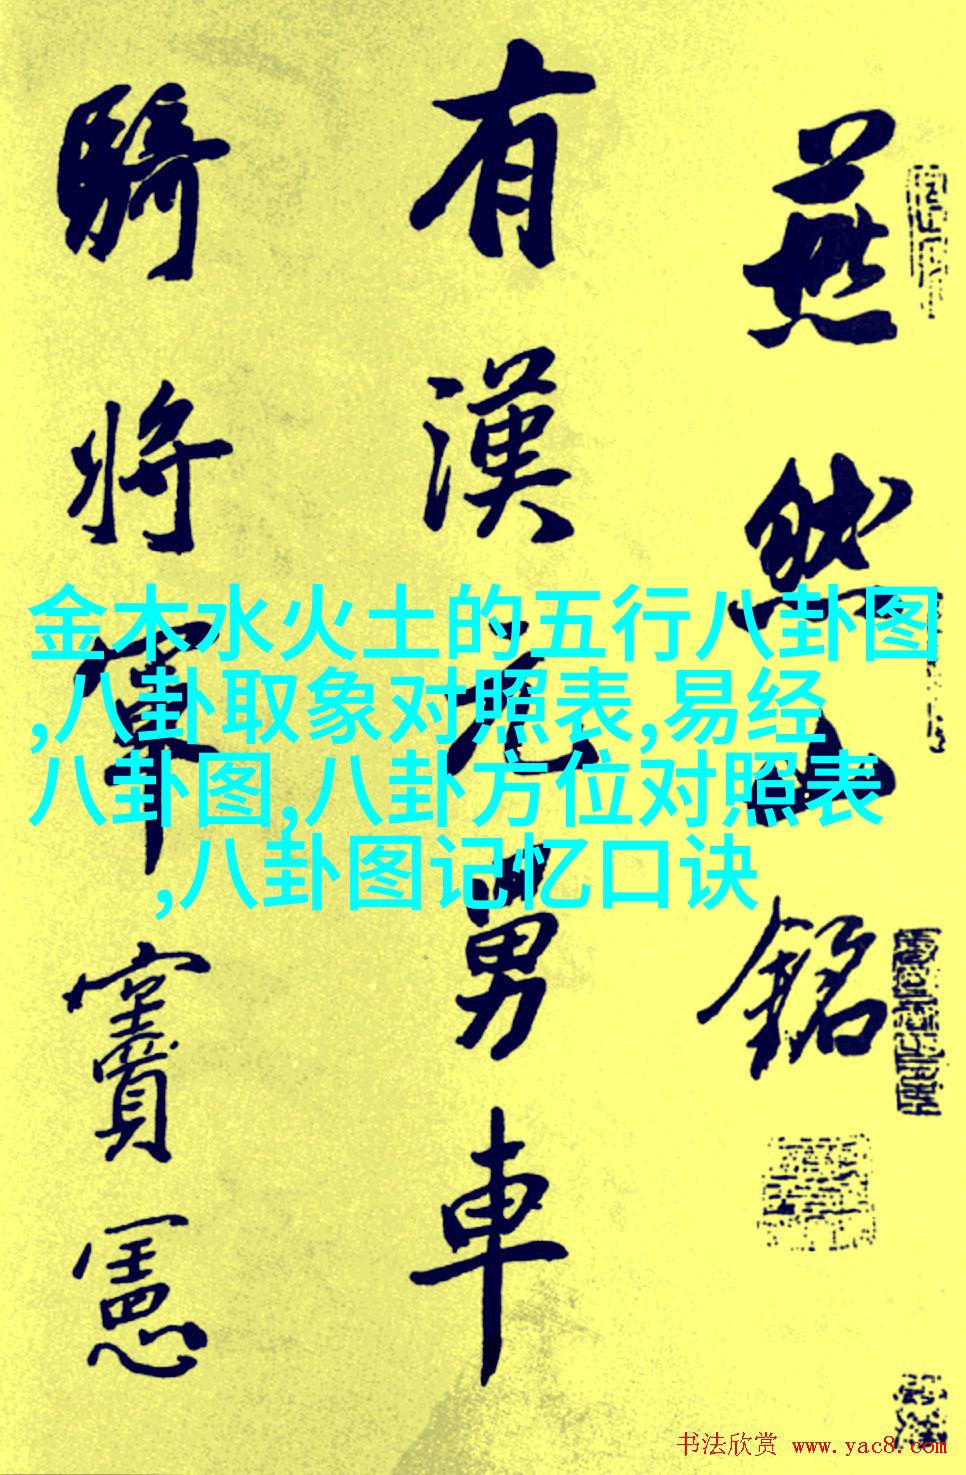 燕然山銘
有漢元舅車
騎將軍竇憲
金木水火土的五行八卦图
,八卦取象对照表,易经
八卦图,八卦方位对照表
,八卦图记忆口诀
书法欣赏 www.yac8.com